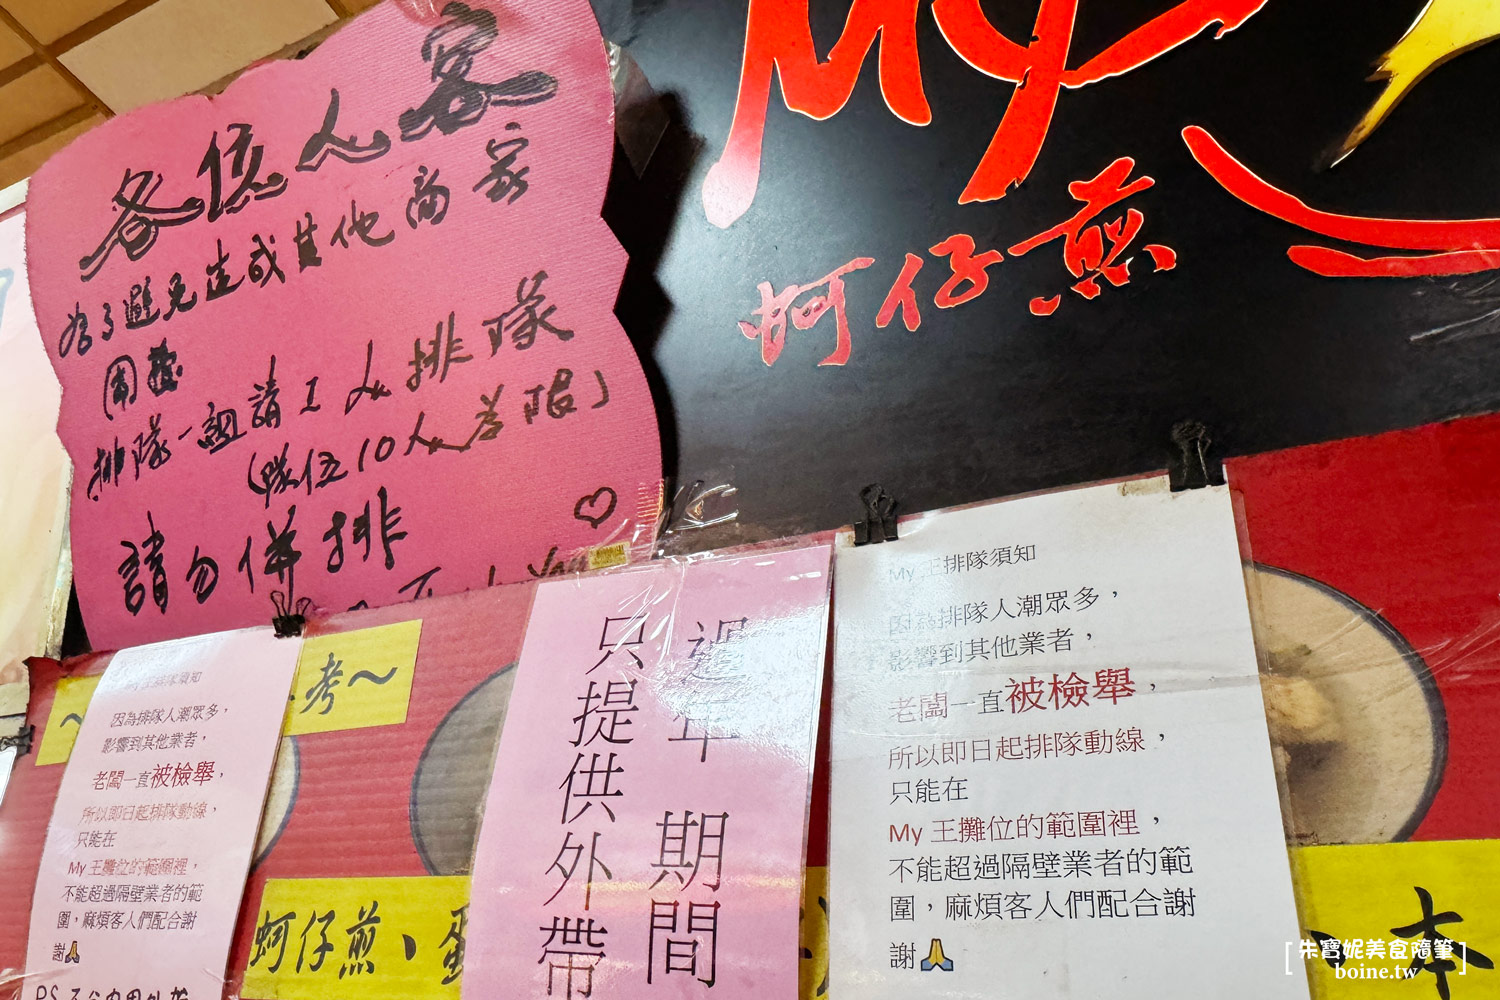 各位人客
為了避免造成其他商家
困擾
排隊一組請1人排隊
(隊伍10人為限」
請勿併排
My
蚵仔煎
My 王排隊須知
因為排隊人潮眾多，
影響到其他業者，
老闆一直被檢舉，
所以即日起排隊動線，
只能在
My 王攤位的範圍裡，
不能超過隔壁業者的範
圍，麻煩客人們配合謝
謝🙏
過年 期間
只提供外帶
王排隊須知
因為排隊人潮眾多，
影響到其他業者，
老闆一直被檢舉，
所以即日起排隊動線，
只能在
My 王攤位的範圍裡，
不能超過隔壁業者的範
圍，麻煩客人們配合謝
謝🙏
考～
蚵仔煎、蛋
本
朱寶妮美食隨筆
boine.tw